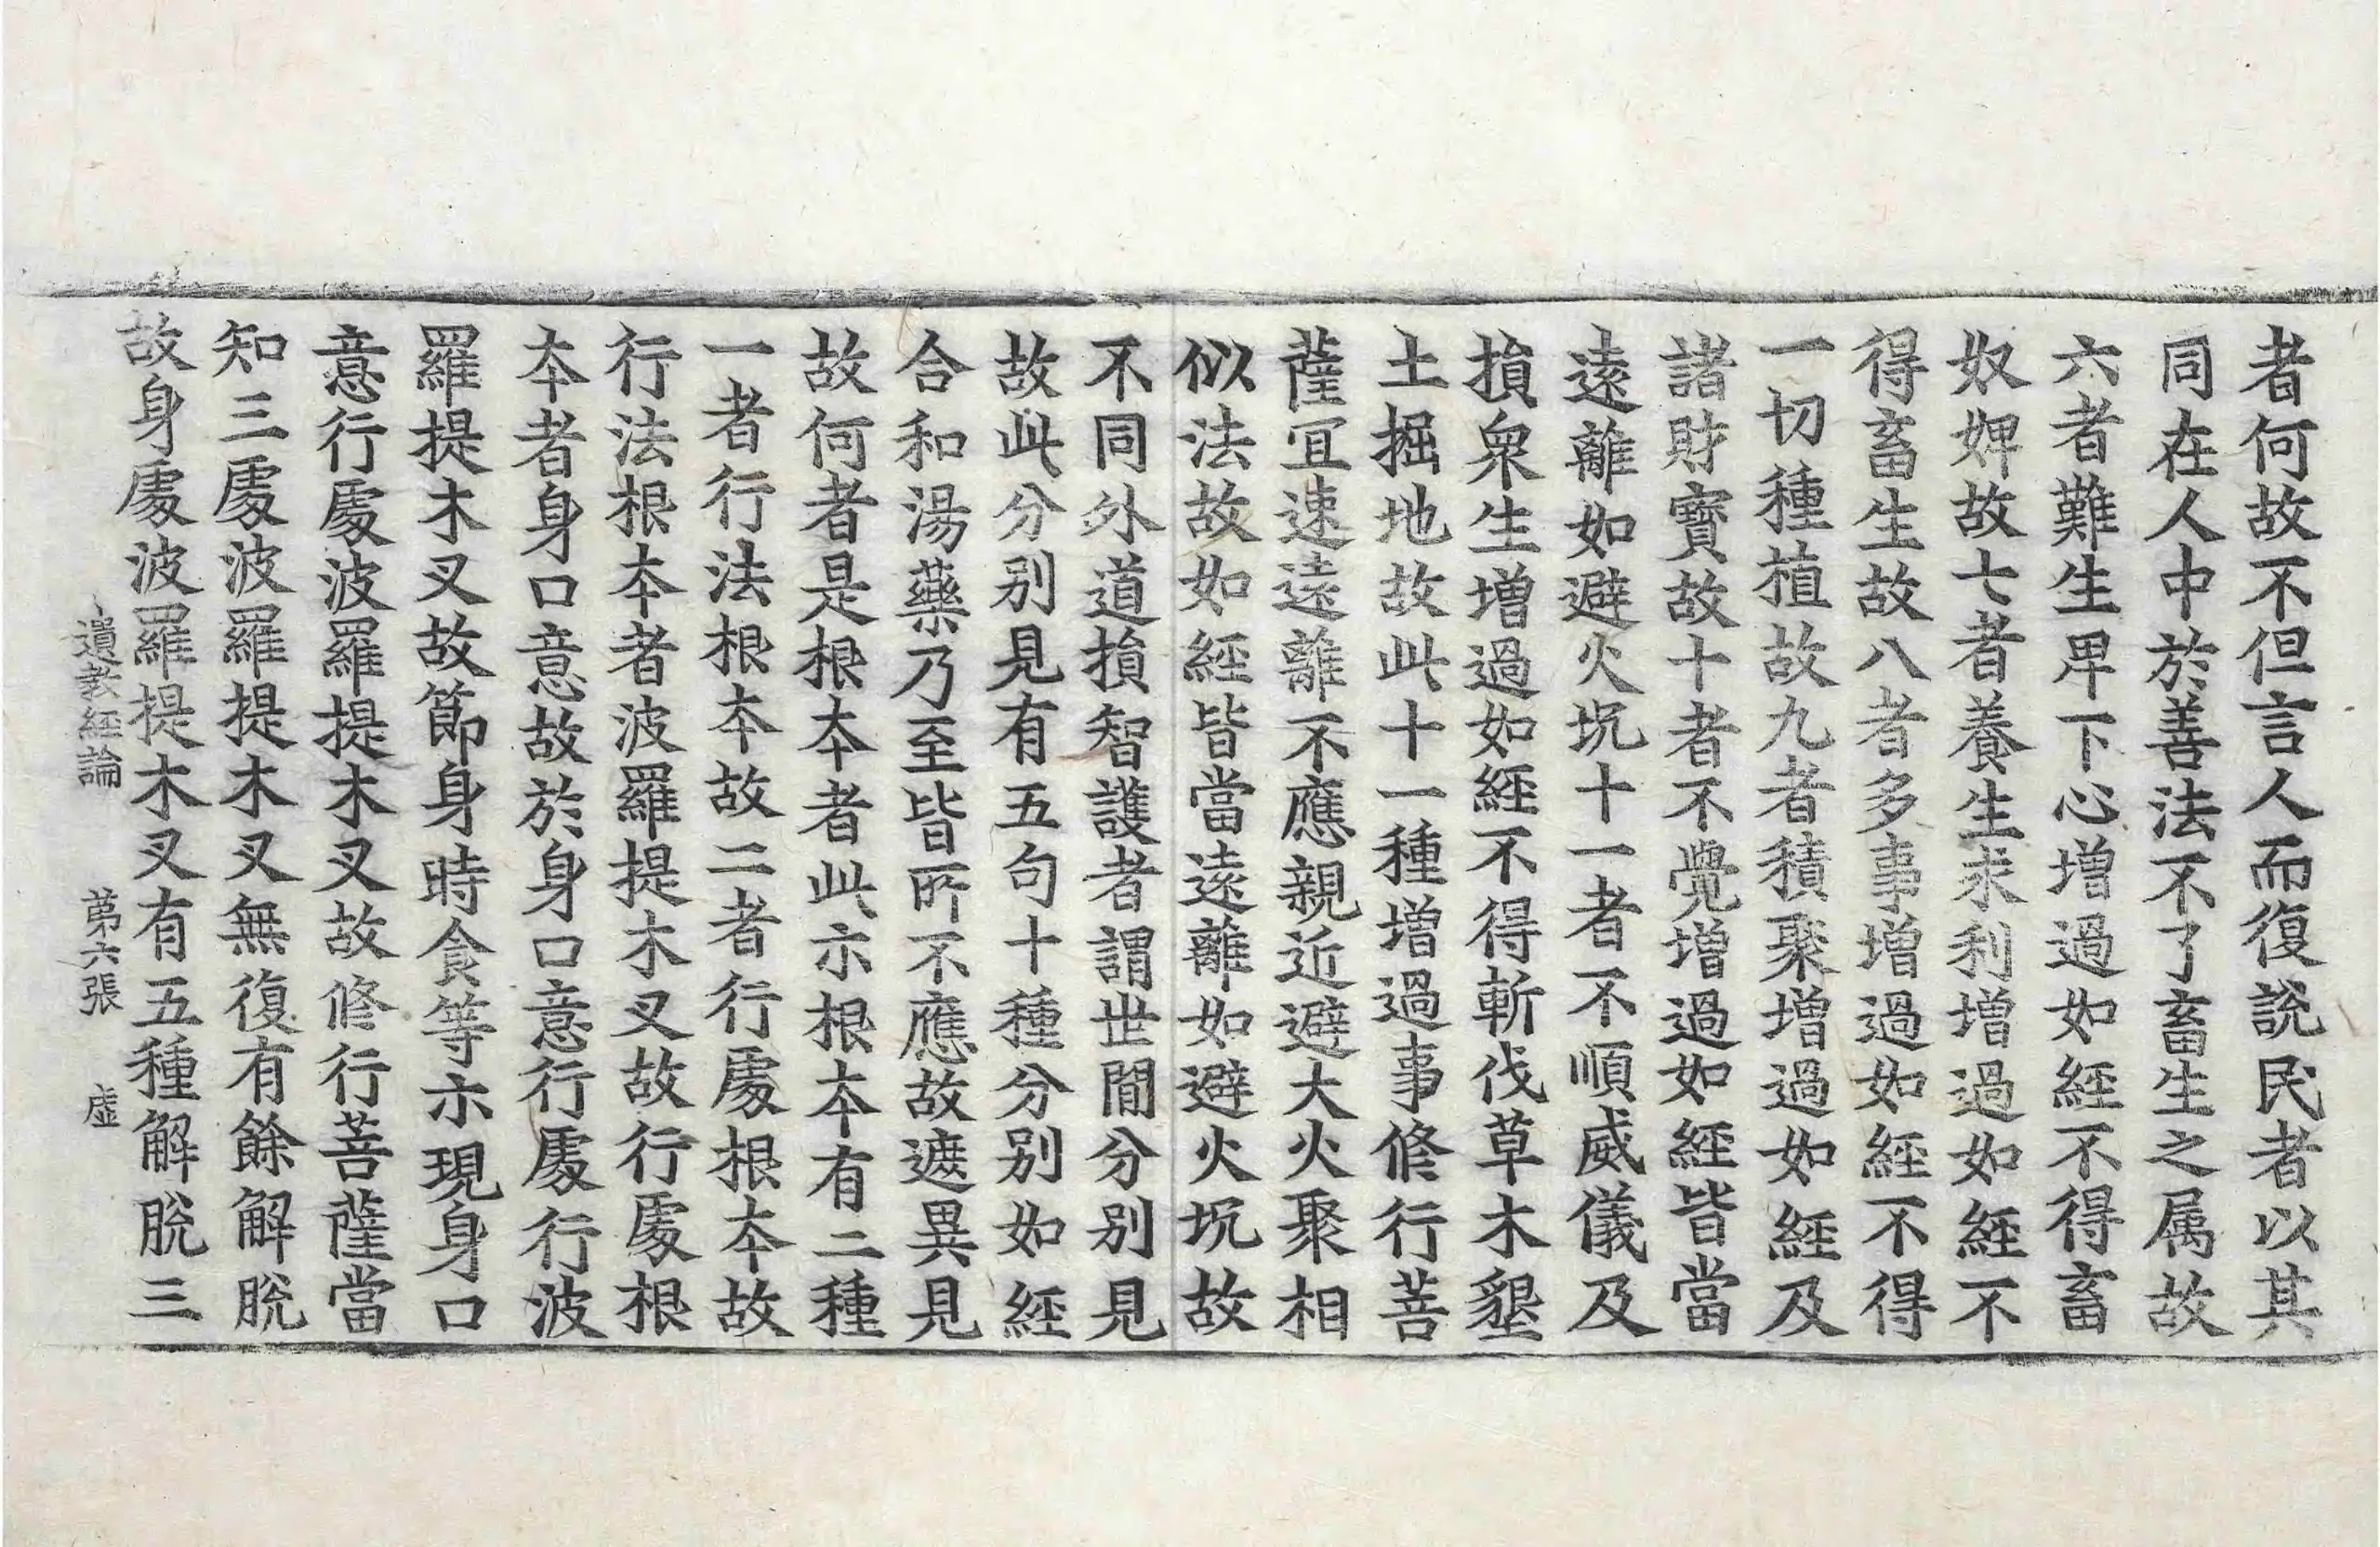 者何故不但言人而復說民者以其
同在人中於善法不了畜生之属故
六者難生卑下心增過如經不得畜
奴婢故七者養生求利增過如經不
得畜生故八者多事增過如經不得
一切種植故九者積聚增過如經及
諸財寶故十者不覺增過如經皆當
遠離如避火坑十一者不順威儀及
損衆生增過如經不得斬伐草木墾
土掘地故此十一種增過事修行菩
薩宜速遠離不應親近避大火聚相
似法故如經皆當遠離如避火坑故
不同外道損智護者謂世間分别見
故此分别見有五句十種分别如經
合和湯藥乃至皆所不應故遮異見
故何者是根本者此示根本有二種
一者行法根本故二者行處根本故
行法根本者波羅提木叉故行處根
本者身口意故於身口意行處行波
羅提木叉故節身時食等示現身口
意行處波羅提木叉故修行菩薩當
知三處波羅提木叉無復有餘解脫
故身處波羅提木叉有五種解脫三
遺教經論 第六張 虛